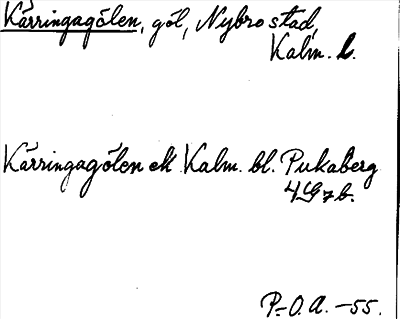 Kärringagölen, göl, Nybro stad,
Kalm. l.
Kärringagölen ek Kalm. bl. Pukaberg
4G7b.
P-O.A. -55.